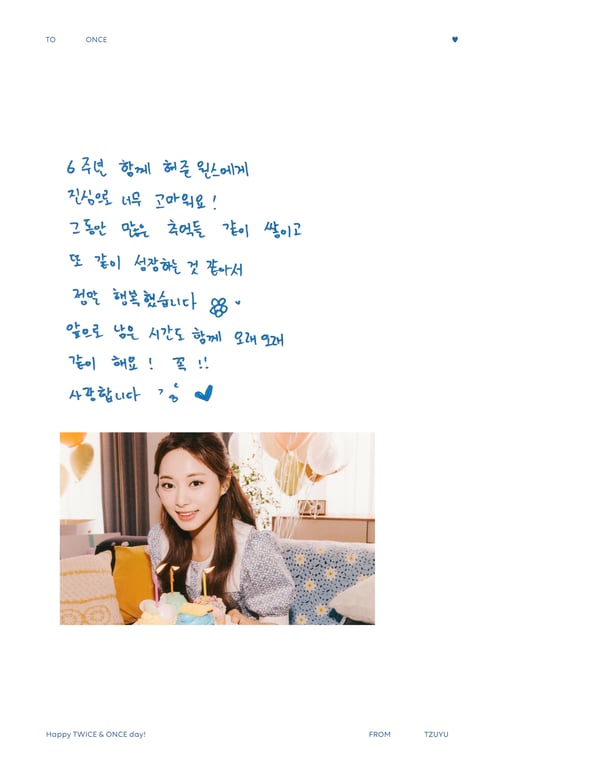 TO ONCE ♥
6주년 함께 해준 원스에게
진심으로 너무 고마워요!
그동안 많은 추억들 같이 쌓이고
또 같이 성장하는 것 같아서
정말 행복했습니다
앞으로 남은 시간도 함께 오래오래
같이 해요! 꼭!!
사랑합니다 ♥
Happy TWICE & ONCE day! FROM TZUYU